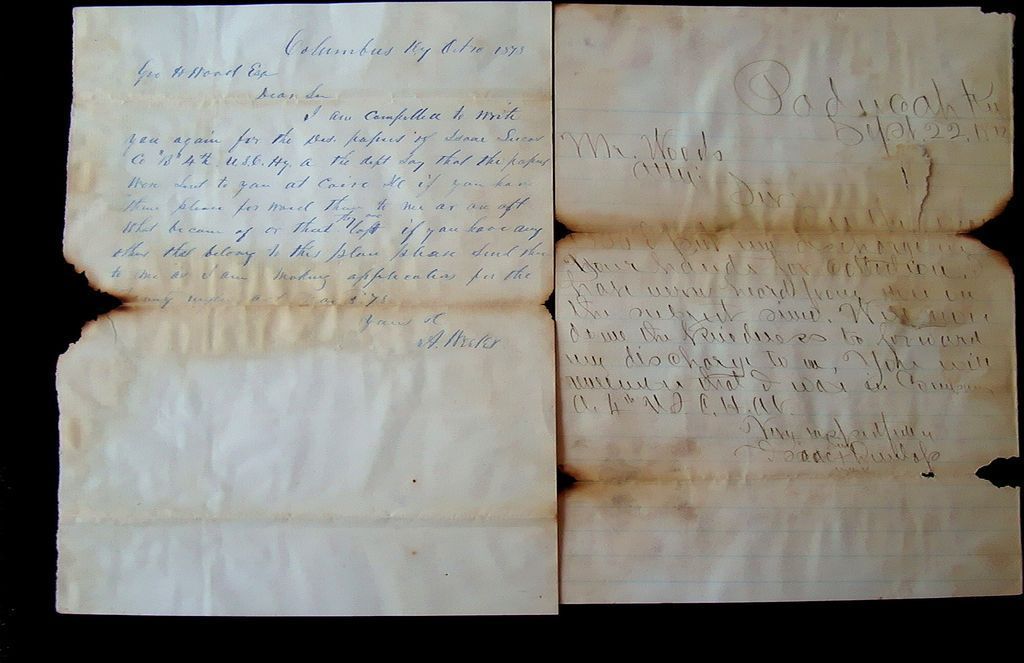 Columbus Ky Oct 10 1873
Geo W Wood Esq
Dear Sir
I am compelled to write
you again for the Dis. papers of Isaac
Co "B" 4th U.S.C. Hy. A the dept Say that the papers
Were Sent to you at Cairo Ill if you have
them please forward them to me or
What became of or that lost if you have any
others that belong to this place please Send them
to me as I am making application for the
Yours
A.
Paducah Ky
Sept 22, 18
Mr. Woods
Atty.
Sir
put my discharge in
Your hands for collection.
have never heard from you on
the subject since. Will you
do me the kindness to forward
my discharge to me, You will
remember that I was in Company
A. 4th U.S. C. H. Ar.
Very respectfully
Isaac Dunlap